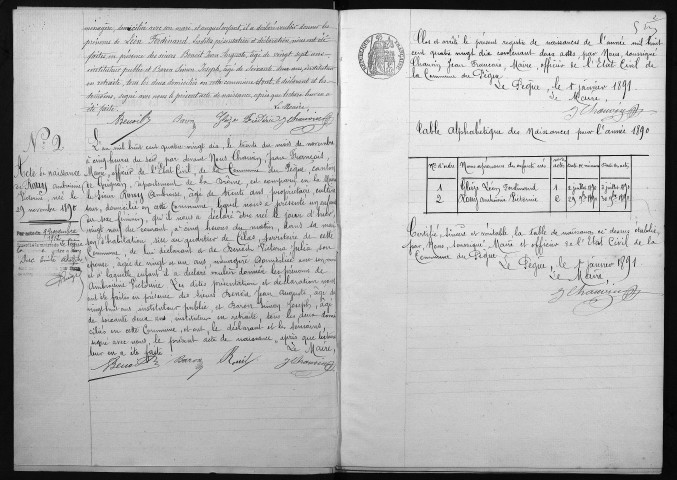 ménagère, domiciliée avec son mari, et auquel enfant, il a déclaré vouloir donner les
prénoms de Léon Ferdinand. Les dites présentation et déclaration, nous ont été
faites en présence des sieurs Benoit Jean Auguste, âgé de vingt sept ans
instituteur public et Baron Simon Joseph, âgé de soixante deux ans, instituteur
en retraite, tous les deux domiciliés en cette commune et ont, le déclarant et les
témoins, signé avec nous le présent acte de naissance, après que lecture leur en a
été faite. Le Maire,
Benoit Baron J Chauvin
N° 2
Acte de naissance
de Roux
Ambroisine
Victorine, née le
29 novembre 1890
L'an mil huit cent quatre vingt dix, le trente du mois de novembre
à cinq heures du soir, par devant Nous Chauvin, Jean François,
Maire, officier de l'Etat Civil, de la Commune du Pègue, canton
de Grignan, département de la Drôme, est comparu en la Maison
Roux Ambroise, âgé de trente ans, propriétaire, cultivateur
domicilié en cette commune lequel nous a présenté un enfant
du sexe féminin, qu'il nous a déclaré être né le jour d'hier,
vingt neuf du courant, à cinq heures du matin, dans sa maison
d'habitation, sise au quartier de territoire de cette
Commune, de lui déclarant et de Victoria Julia son
épouse, âgée de vingt un ans ménagère domiciliée avec son mari
et à laquelle enfant il a déclaré vouloir donner les prénoms de
Ambroisine Victorine. Les dites présentation et déclaration nous
ont été faites en présence des sieurs Benoit Jean Auguste, âgé de
vingt sept ans instituteur public, et Baron Simon Joseph, âgé
de soixante deux ans instituteur en retraite, tous les deux domi-
ciliés en cette Commune, et ont, le déclarant et les témoins,
signé avec nous, le présent acte de naissance, après que lecture
leur en a été faite. Le Maire,
Benoit Baron Roux J Chauvin
Clos et arrêté le présent registre de naissances de l'année mil huit
cent quatre vingt dix contenant deux actes par Nous, soussigné
Chauvin Jean François, Maire, officier de l'Etat Civil de
la Commune du Pègue.
Le Pègue, le 1er janvier 1891.
Le Maire,
J Chauvin
Table Alphabétique des Naissances pour l'année 1890
N° d'ordre Noms et prénoms des enfants nés
1 Léon Ferdinand
2 Roux Ambroisine Victorine
Certifié, sincère et véritable la table de naissances ci dessus établie,
par Nous, soussigné, Maire et officier de l'Etat Civil de la
Commune du Pègue.
Le Pègue, le 1er janvier 1891
Le Maire
J Chauvin